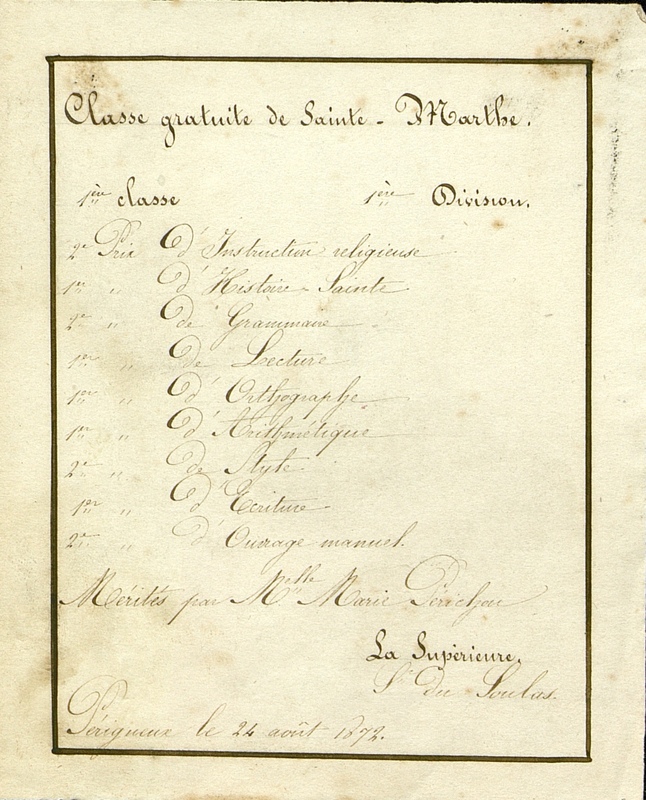 Classe gratuite de Sainte-Marthe.
1ère classe 1ère Division.
2e Prix d'Instruction religieuse
1er " d'Histoire-Sainte
2e " de Grammaire
1er " de Lecture
1er " d'Orthographe
1er " d'Arithmétique
2e " de Style.
1er " d'Ecriture.
2e " d'Ouvrage manuel.
Mérités par Melle Marie
La Supérieure,
Sr du Soulas.
Périgueux le 24 août 1872.